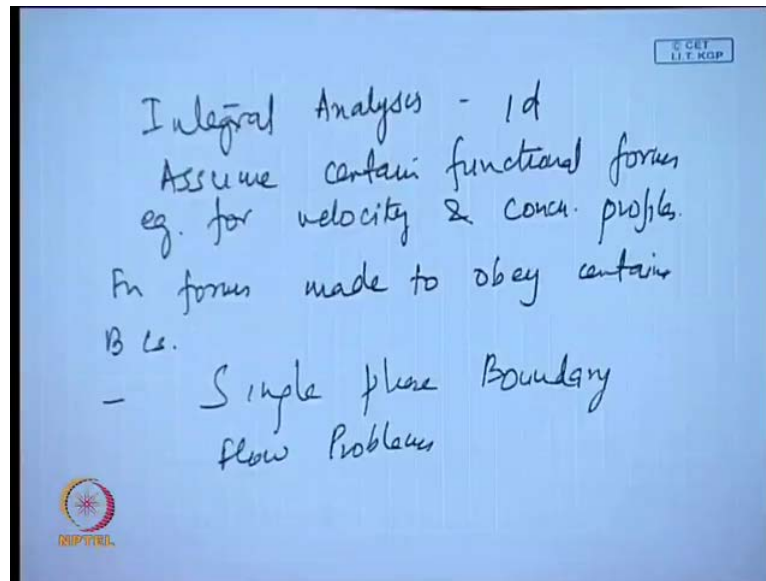 © CET
I.I.T. KGP
Integral Analysis - 1d
Assume certain functional forms
eg. for velocity & concn. profiles.
Fn forms made to obey certain
B Cs.
- Single phase Boundary
flow Problems
NPTEL